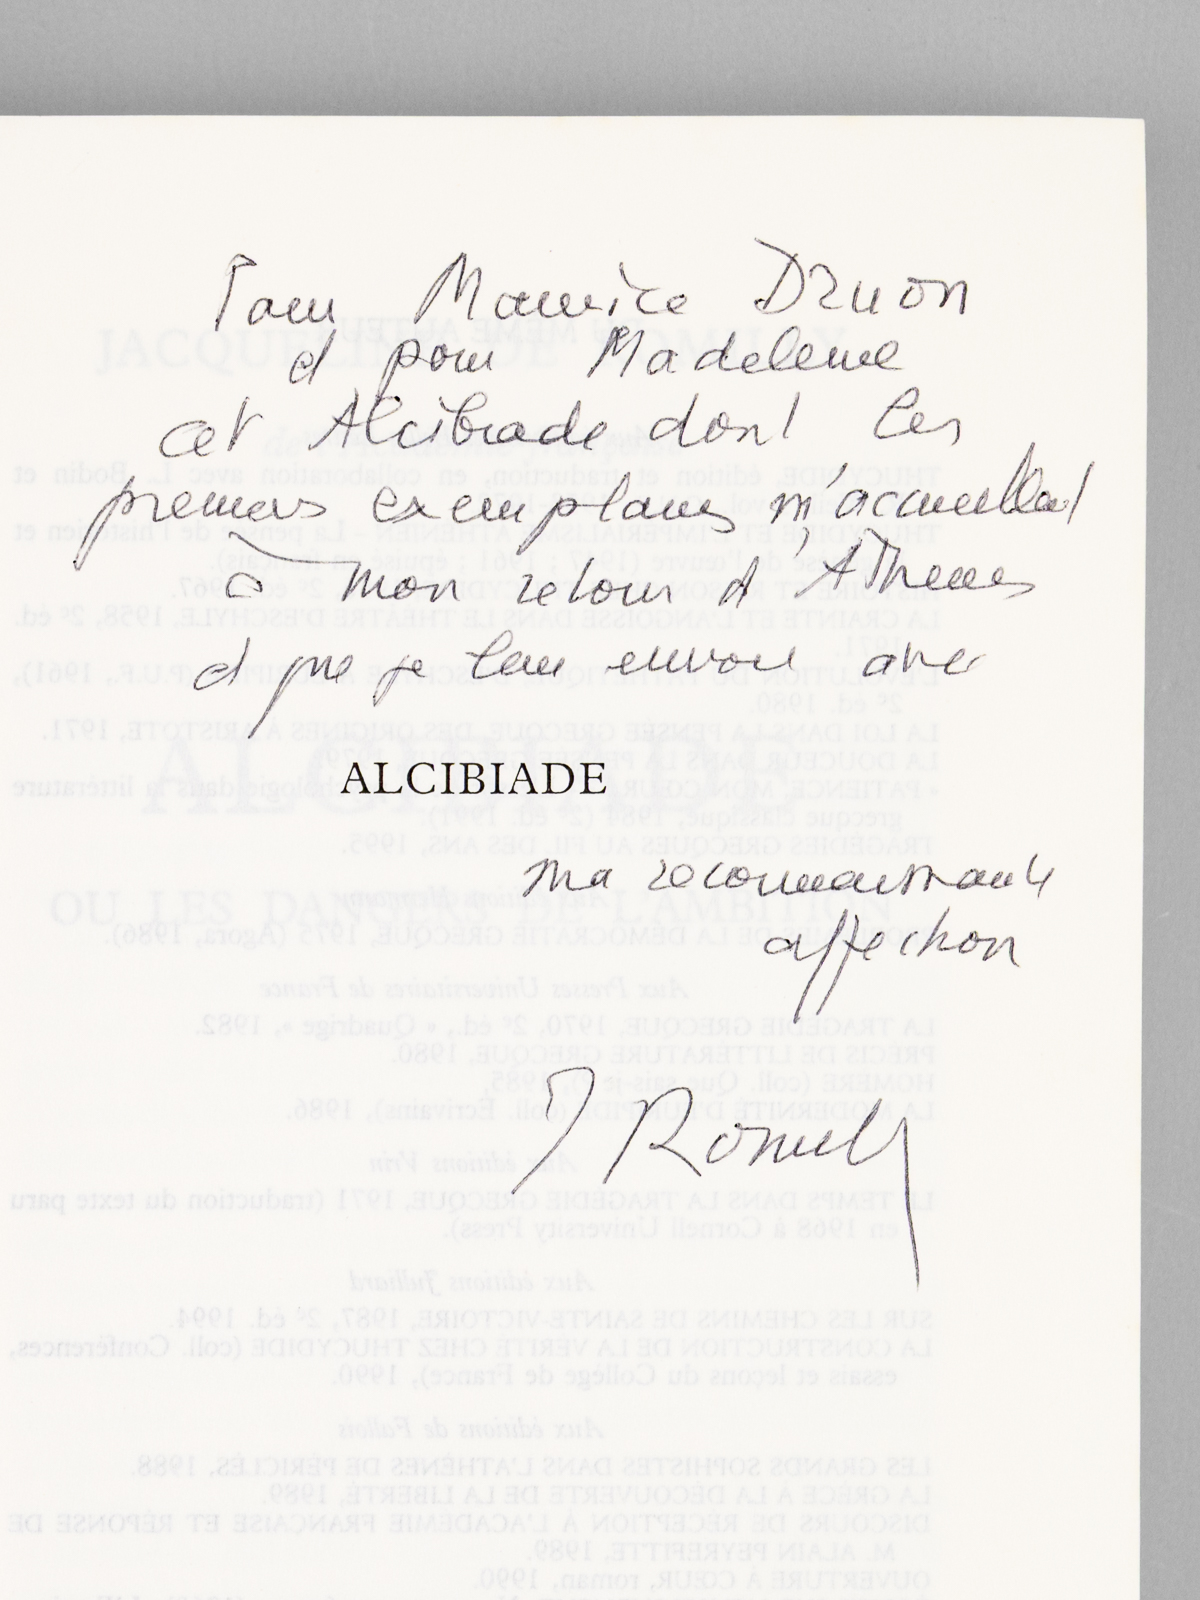 Pour Maurice Druon
et pour Madeleine
cet Alcibiade dont les
premiers exemplaires m'accueillent
à mon retour d'Athènes
et que je leur envoie avec
ALCIBIADE
ma reconnaissante
affection
J Romilly